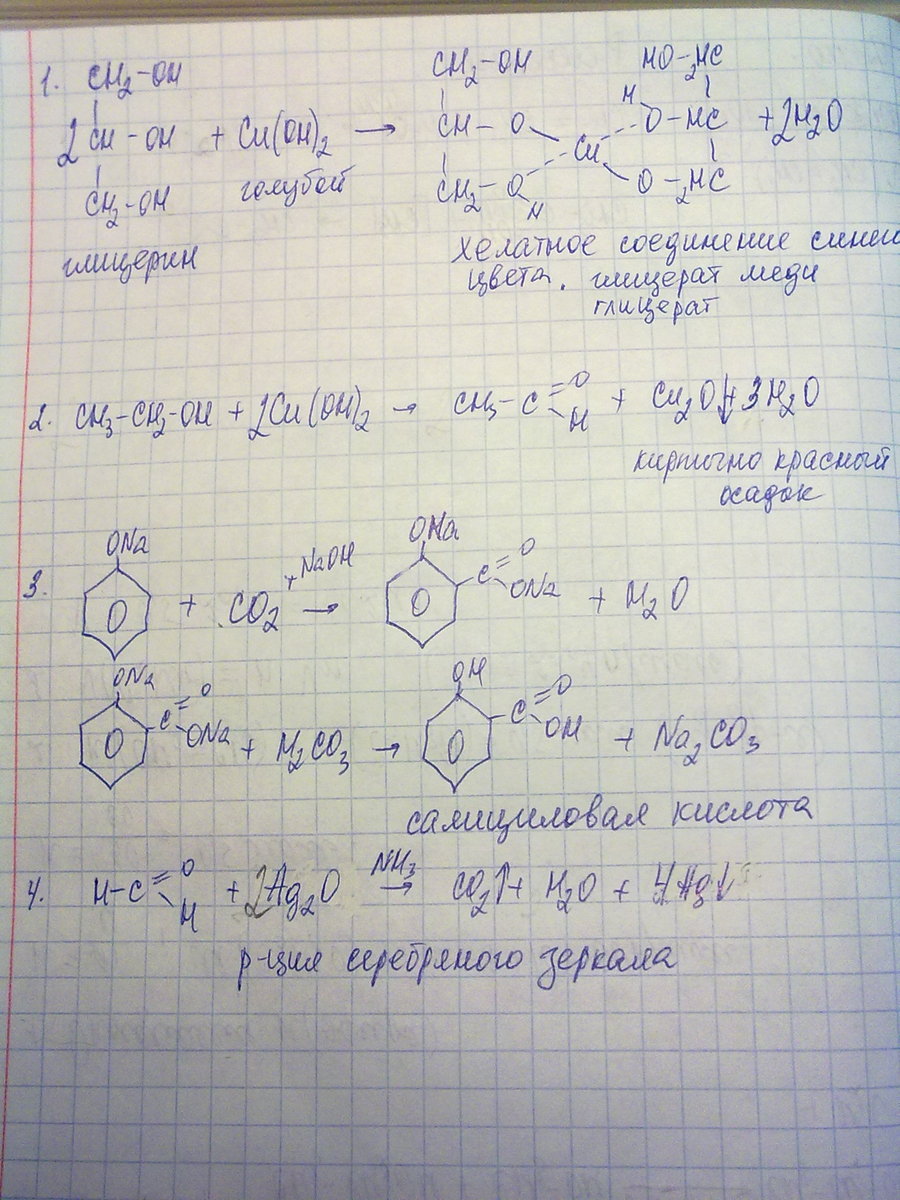 1. CH₂-OH CH₂-OH HO-₂HC
2 CH-OH + Cu(OH)₂ → CH-O Cu H O-HC + 2H₂O
CH₂-OH голубой CH₂-O H O-₂HC
глицерин хелатное соединение синего
цвета. глицерат меди
глицерат
2. CH₃-CH₂-OH + 2Cu(OH)₂ → CH₃-C=O H + Cu₂O↓ + 3H₂O
кирпично красный
осадок
ONa ONa
3. + CO₂ + NaOH → C=O ONa + H₂O
ONa OH
C=O ONa + H₂CO₃ → C=O OH + Na₂CO₃
салициловая кислота
4. H-C=O H + 2Ag₂O NH₃ → CO₂↑ + H₂O + 4Ag↓
р-ция серебряного зеркала